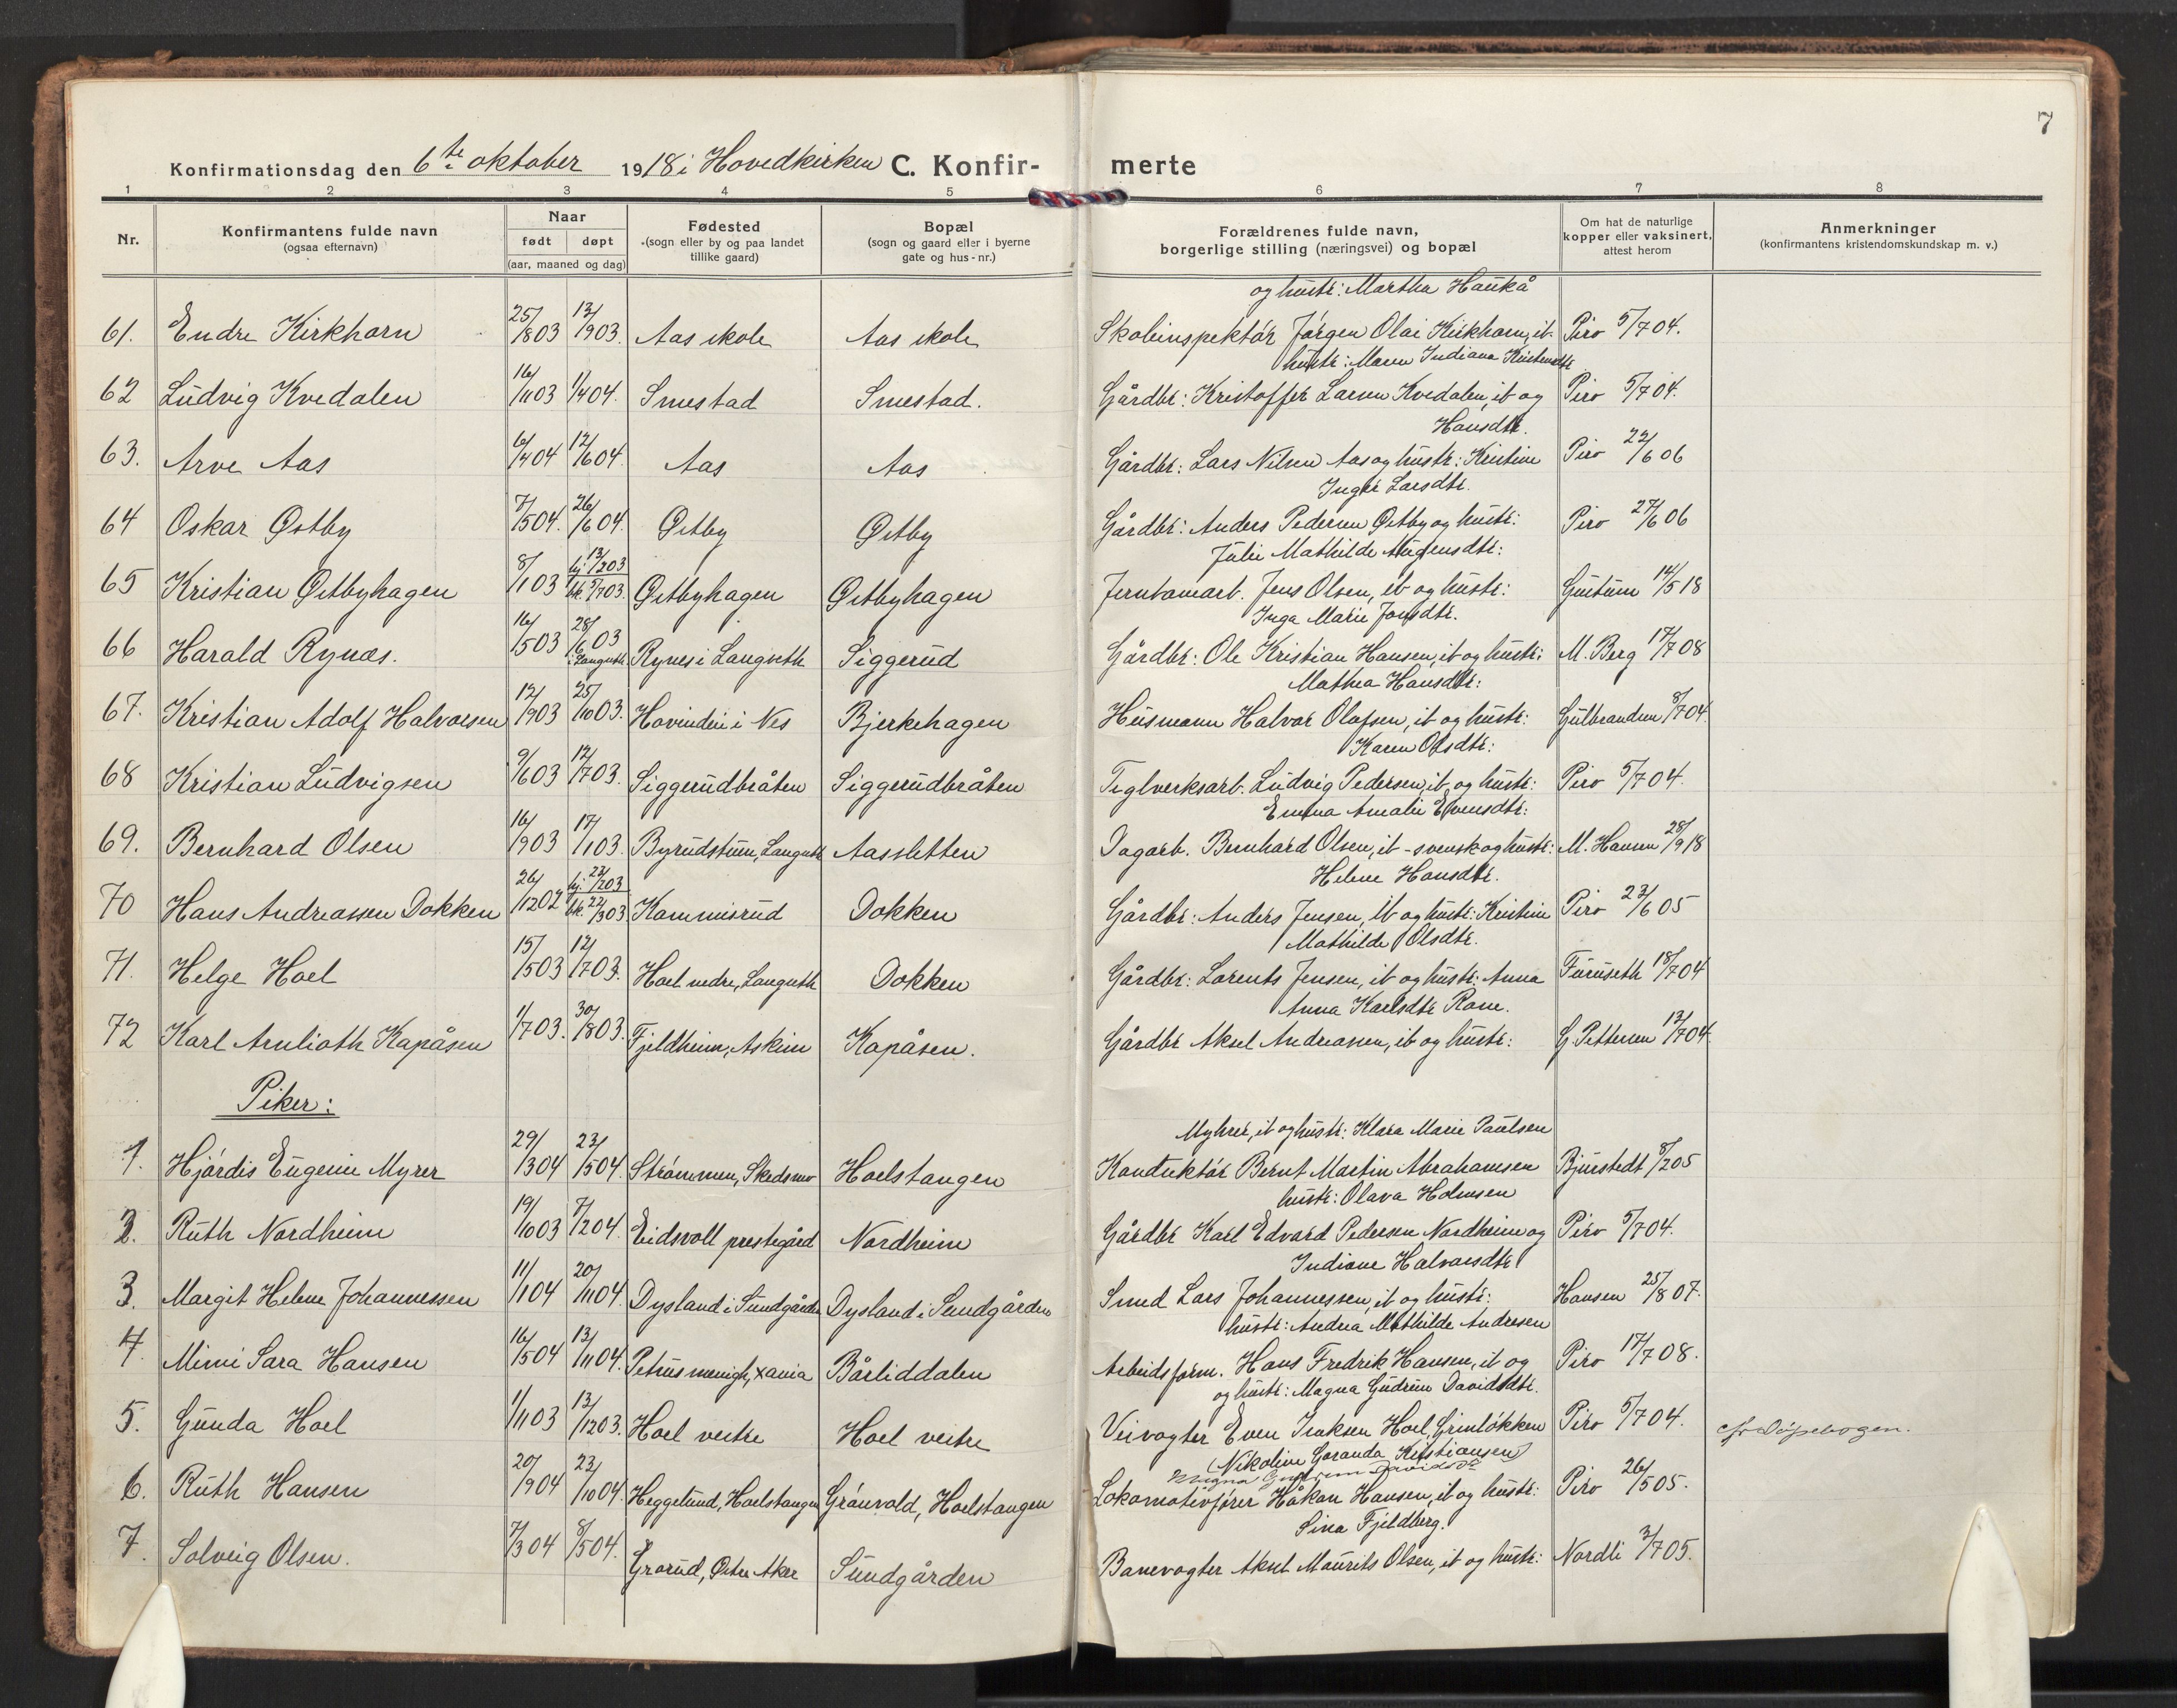 7
Konfirmationsdag den 6te oktober 1918 i Hovedkirken C. Konfir- merte
1 2 3 4 5 6 7 8
Nr.
Konfirmantens fulde navn
(ogsaa efternavn)
Naar
født døpt
(aar, maaned og dag)
Fødested
(sogn eller by og paa landet
tillike gaard)
Bopæl
(sogn og gaard eller i byerne
gate og hus-nr.)
Forældrenes fulde navn,
borgerlige stilling (næringsvei) og bopæl
Om hat de naturlige
kopper eller vaksinert,
attest herom
Anmerkninger
(konfirmantens kristendomskundskap m. v.)
og hustr: Martha Haukå
61. Endre Kirkhorn 25/803 13/903. Aas skole Aas skole Skoleinspektör Jörgen Olai Kirkhorn, ib. Piro 5/704.
hustr: Maren Indiana Kristensdtr
62 Ludvig Kvedalen 16/1103 1/404. Smestad Smestad. Gårdbr: Kristoffer Larsen Kvedalen, ib og Piro 5/704.
Hansdtr.
63. Arve Aas 6/404 12/604. Aas Aas Gårdbr: Lars Nilsen Aas og hustr: Kristine Piro 22/606
Inger Larsdtr.
64 Oskar Østby 7/504. 26/604. Østby Østby Gårdbr: Anders Pedersen Østby og hustr: Piro 27/606
Julie Mathilde Mugensdtr:
65 Kristian Østbyhagen 8/103 hj: 13/203 bk. 5/703. Østbyhagen Østbyhagen Jernbanearb. Jens Olsen, ib og hustr: Gustum 14/518
Inga Marie Jonsdtr.
66 Harald Rynæs. 16/503 28/603 i Langseth Rynes i Langseth Siggerud Gårdbr: Ole Kristian Hansen, ib og hustr: M. Berg 17/708
Mathea Hansdtr:
67. Kristian Adolf Halvorsen 12/903 25/1003. Hovinden i Nes Bjerkehagen Husmann Halvor Olafsen, ib og hustr: Gulbrandsen 8/704.
Karen Olsdtr:
68 Kristian Ludvigsen 9/603 12/703. Siggerudbråten Siggerudbråten Teglverksarb. Ludvig Pedersen, ib og hustr: Piro 5/704.
Emma Amalie Evensdtr:
69. Bernhard Olsen 16/903 17/1103. Byrudstuen, Langseth Aassletten Dagarb. Bernhard Olsen, ib - svensk og hustr: M. Hansen 28/918
Helene Hansdtr.
70 Hans Andreassen Dokken 26/1202 hj: 23/203 bk. 22/303 Kammisrud Dokken Gårdbr: Anders Jensen, ib og hustr: Kristine Piro 23/605
Mathilde Olsdtr.
71. Helge Hoel 15/503 12/703. Hoel nedre, Langseth Dokken Gårdbr: Lorents Jensen, ib og hustr: Anna Furuseth 18/704
Anna Karlsdtr Rone.
72 Karl Arnlioth Kapåsen 1/703. 30/803. Fjeldheim, Askim Kapåsen. Gårdbr Aksel Andreassen, ib og hustr: G. Pettersen 13/704.
Piker:
Myhrer, ib og hustr: Klara Marie Paulsen
1. Hjördis Eugenie Myrer 29/304 23/504. Strömmen, Skedsmo Hoelstangen Konduktör Bernt Martin Abrahamsen Bjurstedt 8/205
hustr: Olava Holmsen
2. Ruth Nordheim 19/1003 7/204. Eidsvoll prestegård Nordheim Gårdbr Karl Edvard Pedersen Nordheim og Piro 5/704.
Indiane Halvorsdtr
3. Margit Helene Johannessen 11/104 20/1104. Dysland i Sundgården Dysland i Sundgården Smed Lars Johannessen, ib og hustr: Hansen 25/807.
hustr: Andrea Mathilde Andresen
4. Mimi Sara Hansen 16/504 13/1104. Petrus menigh, Xania Bårliddalen Arbeidsform. Hans Fredrik Hansen, ib og Piro 17/708.
og hustr: Magna Gudrun Davidsdtr.
5. Gunda Hoel 1/1103 13/1203. Hoel vestre Hoel vestre Veivogter Even Isaksen Hoel, Grinlökken Piro 5/704. cfr Döpebogen.
(Nikoline Goranda Kristiansen)
Magna Gudrun Davidsdtr
6. Ruth Hansen 20/904 23/1004. Heggelund, Hoelstangen Grönvold, Hoelstangen Lokomotivförer Håkon Hansen, ib og hustr: Piro 26/505.
Sina Fjeldberg.
7. Solveig Olsen. 7/304 8/504. Grorud, Østre Aker Sundgården Banevogter Aksel Maurits Olsen, ib og hustr: Nordli 3/705.